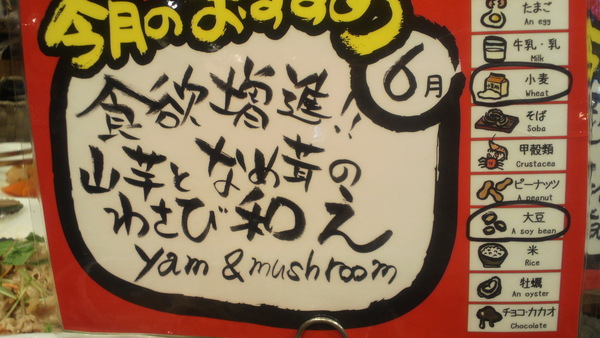 今月のおすすめ
6月
食欲増進!!
山芋となめ茸の
わさび和え
yam & mushroom
たまご
An egg
牛乳・乳
Milk
小麦
Wheat
そば
Soba
甲殻類
Crustacea
ピーナッツ
A peanut
大豆
A soy bean
米
Rice
牡蠣
An oyster
チョコ・カカオ
Chocolate